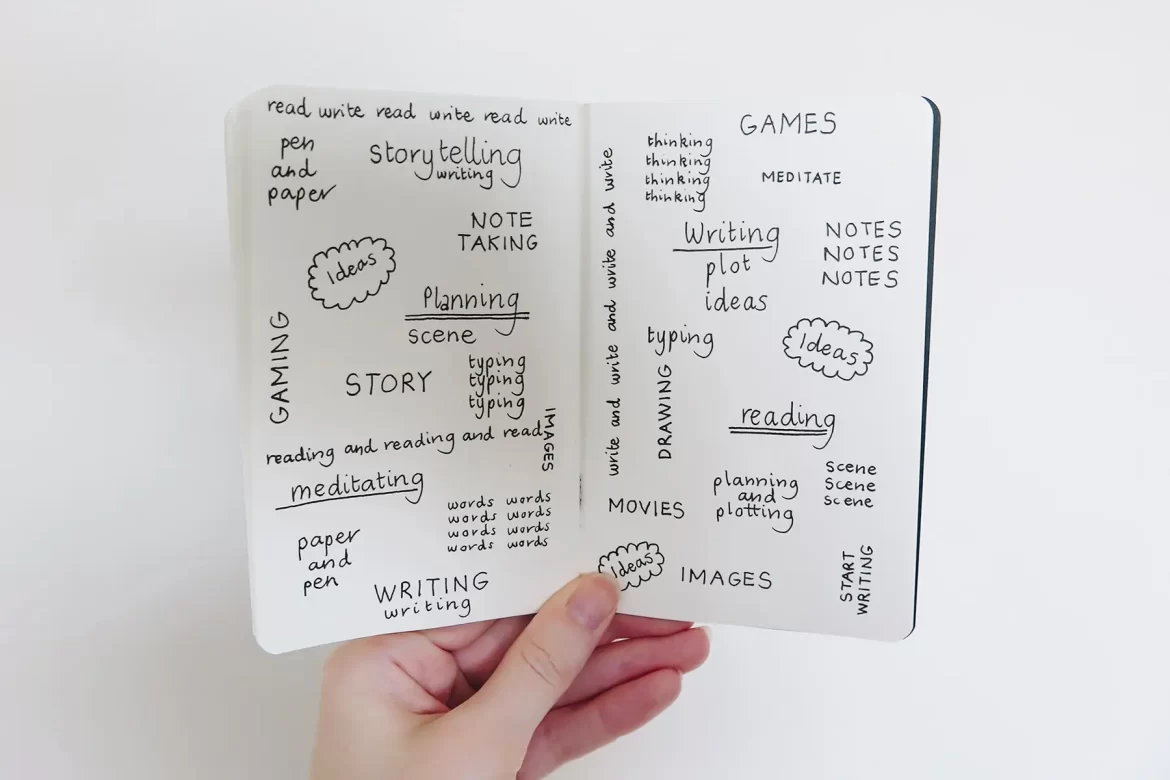 read write read write read write
pen
and
paper
Storytelling
writing
NOTE
TAKING
Ideas
Planning
scene
GAMING
STORY
typing
typing
typing
IMAGES
reading and reading and read
meditating
words words
words words
words words
words words
paper
and
pen
WRITING
writing
write and write and write and write
GAMES
thinking
thinking
thinking
thinking
MEDITATE
Writing
plot
ideas
NOTES
NOTES
NOTES
typing
Ideas
DRAWING
reading
planning
and
plotting
Scene
Scene
Scene
MOVIES
Ideas
IMAGES
START
WRITING